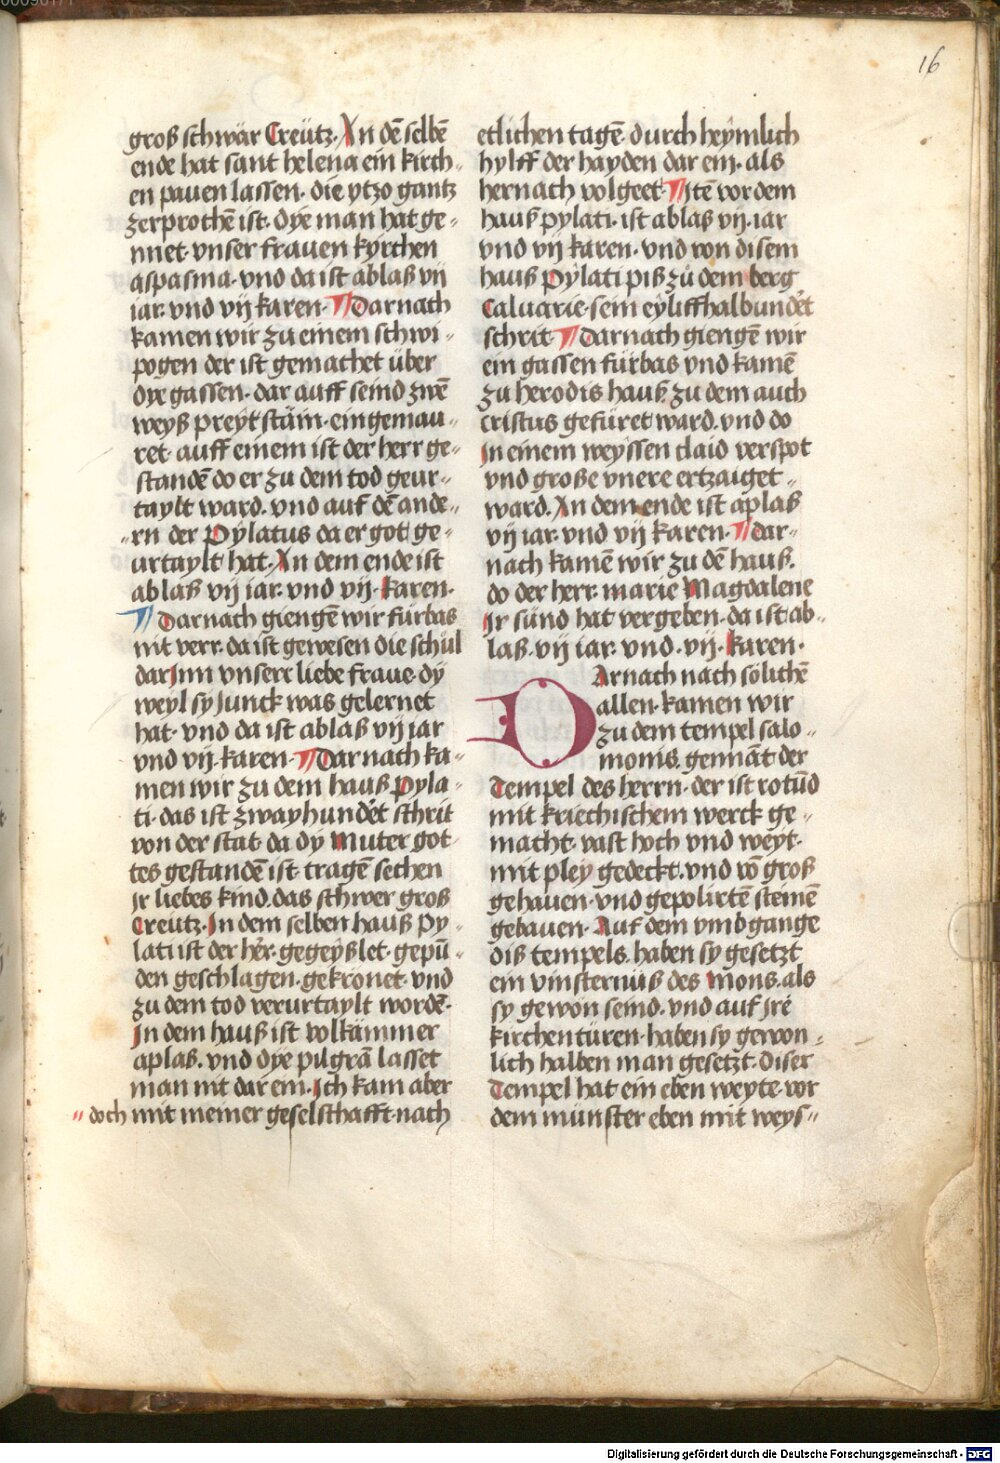 16
groß schwär Creütz· An dē selbē
ende hat sant helena ein kirch-
en pauen lassen· die ytzo gantz
zerprochē ist· dye man hat ge-
nnet· vnser frauen kyrchen
aspasma· vnd da ist ablaß vij
iar· vnd vij karen· ¶ Darnach
kamen wir zu einem schwi-
pogen der ist gemachet über
dye gassen· dar auff seind zwē
weyß preyt stäin· eingemau-
ret· auff einem ist der herr ge-
standē do er zu dem tod geur-
taylt ward· vnd auf dē ande-
rn der Pylatus da er got ge-
urtaylt hat· An dem ende ist
ablaß vij iar· vnd vij· karen·
¶ Darnach giengē wir fürbas
nit verr· da ist gewesen die schůl
dar Jnn vnsere liebe fraue· dÿ
weyl sy Junck was gelernet
hat· vnd da ist ablaß vij iar
vnd vij· karen· ¶ Darnach ka-
men wir zu dem hauß Pyla-
ti· das ist zwayhundēt schrit
von der stat· da dÿ Muter got-
tes gestandē ist· tragē sechen
jr liebes kind· das schwer groß
Creutz· Jn dem selben hauß Py-
lati ist der hēr· gegeyßlet· gepū-
den geschlagen· gekronet· vnd
zu dem tod verurtaylt wordē·
Jn dem hauß ist volkämmer
aplaß· vnd dye pilgrā lasset
man nit dar ein· Jch kam aber
doch mit meiner geselschafft· nach
etlichen tagē· durch heymlich
hylff der hayden dar ein· als
hernach volgeet· ¶ Jtē vor dem
hauß pylati· ist ablaß vij· iar
vnd vij karen· vnd von disem
hauß Pÿlati piß zů dem berg
Caluarie· sein eyliffhalbundēt
schrit· ¶ Darnach giengē wir
ein gassen fürbas vnd kamē
zu herodis hauß zu dem auch
cristus gefüret ward· vnd do
Jn einem weyssen claid verspot
vnd große vnere ertzaiget
ward· An dem ende ist aplaß
vij iar· vnd vij karen· ¶ dar-
nach kamē wir zu dē hauß·
do der herr· marie Magdalene
Jr sünd hat vergeben· da ist ab-
laß· vij iar· vnd· vij· karen·
DArnach nach sölichē
allen· kamen wir
zu dem tempel salo-
monis· gennāt der
Tempel des herrn· der ist rotūd
mit kriechischem werck ge-
macht· vast hoch vnd weyt·
mit pley gedeckt· vnd vō groß
gehauen· vnd gepolirtē steinē
gebauen· Auf dem vmbgange
diß tempels· haben sy gesetzt
ein vinsternüß des Mons· als
sy gewon seind· vnd auf jrē
kirchentüren· haben sy gewon-
lich halben man gesetzt· diser
Tempel hat ein eben weyte· vor
dem münster eben mit weys-
Digitalisierung gefördert durch die Deutsche Forschungsgemeinschaft - DFG